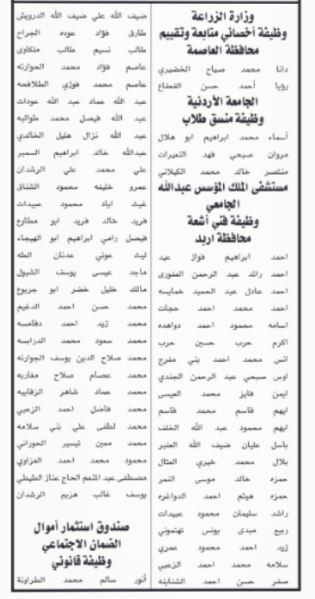 وزارة الزراعة
وظيفة أخصائي متابعة وتقييم
محافظة العاصمة
دانا محمد صياح الخضيري
رؤيا أحمد حسن القعقاع
الجامعة الأردنية
وظيفة منسق طلاب
أسماء محمد ابراهيم ابو هلال
مروان صبحي فهد النعيرات
منتصر خالد محمد الكيلاني
مستشفى الملك المؤسس عبدالله
الجامعي
وظيفة فني أشعة
محافظة اربد
احمد ابراهيم فواز عيد
احمد رائد عبد الرحمن العموري
احمد عادل عبد الحميد خمايسه
احمد محمد احمد حجات
اسامه محمود احمد دواهده
اكرم حرب حسين حرب
انس محمد احمد بني مفرج
اوس صبحي عبد الرحمن الجندي
ايمن فايز محمد العيسى
ايهم قاسم محمد قاسم
ايهم محمود عبد الله الخلف
باسل عليان ضيف الله العنبر
بلال محمد خيري العثال
حمزه خالد موسى النمر
حمزه هيثم احمد الدواغره
راشد سليمان محمود عبيدات
ربيع مبدى يونس تهتموني
زيد احمد محمود عمري
سلامه محمد احمد الزعبي
صقر حسن احمد الشنابنه
ضيف الله علي ضيف الله الدرويش
طارق فؤاد عوده الجراح
طالب نسيم طالب متكاوي
عاصم فؤاد محمد الحوارنه
عاصم محمد فوزي الطلافحه
عبد الله عماد عبد الله عودات
عبد الله فيصل محمد طوالبه
عبد الله نزال هليل الخالدي
عبدالله خالد ابراهيم السمير
علي محمد علي الرشدان
عمرو خليفه محمود الشناق
غيث اياد محمود عبيدات
فريد خالد فريد ابو مطاوع
فيصل رامي ابراهيم ابو الهيجاء
ليث عوني عدنان الطه
ماجد عيسى يوسف الشبول
مالك خليل خضر ابو جربوع
محمد حسن احمد الدغيم
محمد زيد احمد دقامسه
محمد سعود محمد الدرابسه
محمد صلاح الدين يوسف الجوارنه
محمد عصام صلاح مقاربه
محمد عماد شاهر الزقايبه
محمد فاضل احمد الزعبي
محمد لطفي علي بني سلامه
محمد معين تيسير الحوراني
محمود محمد احمد الغزاوي
مصطفى عبد المنعم الحاج عناز الطيطي
يوسف غالب هزيم الرشدان
صندوق استثمار أموال
الضمان الاجتماعي
وظيفة قانوني
أنور سالم محمد الطراونة